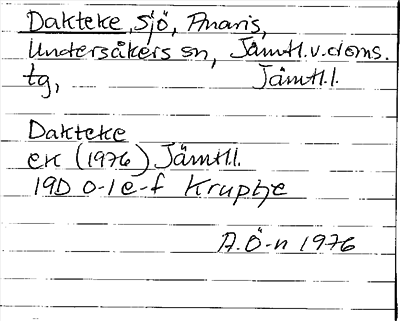 Dakteke, sjö, Anaris,
Undersåkers sn, Jämtl.v.doms.
tg, Jämtl.l.
Dakteke
ek (1976) Jämtl.l.
19D 0-1 e-f Kruptje
A.Ö-n 1976